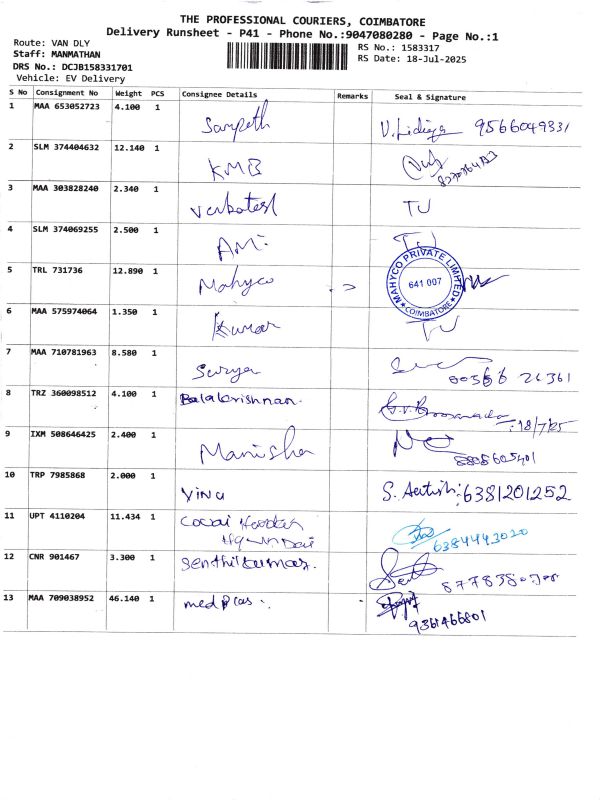 THE PROFESSIONAL COURIERS, COIMBATORE
Delivery Runsheet - P41 - Phone No.:9047080280 - Page No.:1
Route: VAN DLY
RS No.: 1583317
Staff: MANMATHAN
RS Date: 18-Jul-2025
DRS No.: DCJB158331701
Vehicle: EV Delivery
S No Consignment No Weight PCS Consignee Details Remarks Seal & Signature
1 MAA 653052723 4.100 1 Sampeth 9566049331
2 SLM 374404632 12.140 1 KMB
3 MAA 303828240 2.340 1 TU
4 SLM 374069255 2.500 1 AMI TU
5 TRL 731736 12.890 1 Mahyco MAHYCO PRIVATE LIMITED 641 007 COIMBATORE
6 MAA 575974064 1.350 1 Kumar TU
7 MAA 710781963 8.580 1 Surya 26361
8 TRZ 360098512 4.100 1 Balakrishnan. 18/7/25
9 IXM 508646425 2.400 1 Manisha 8808605401
10 TRP 7985868 2.000 1 Vinu S. Aatish: 6381201252
11 UPT 4110204 11.434 1 6384443020
12 CNR 901467 3.300 1 Senthilkumar.
13 MAA 709038952 46.140 1 medplas. 9361466801